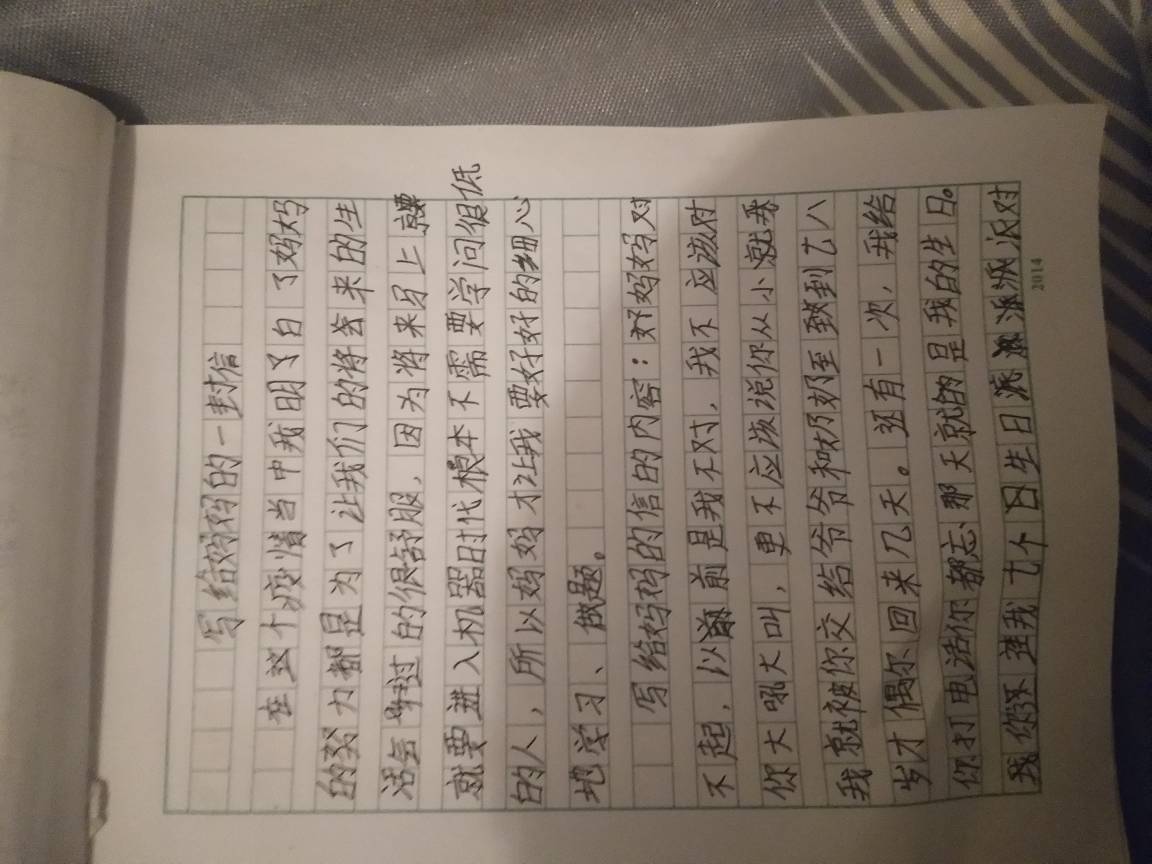 写给妈妈的一封信
在这个疫情当中我明了白了妈妈
的努力都是为了让我们的将会来的生
活会过的很舒服，因为将来马上就要
就要进入机器时代根本不需要学问很低
的人，所以妈妈才让我要好好的细心
地学习、做题。
写给妈妈的信的内容：好妈妈对
不起，以前是我不对，我不应该对
你大吼大叫，更不应该说你从小就我
我就被你交给爷爷和奶奶至到七八
岁才偶尔回来几天。还有一次，我给
你打电话你都忘那天就的是我的生日。
我你还在我七个生日派派对
2014